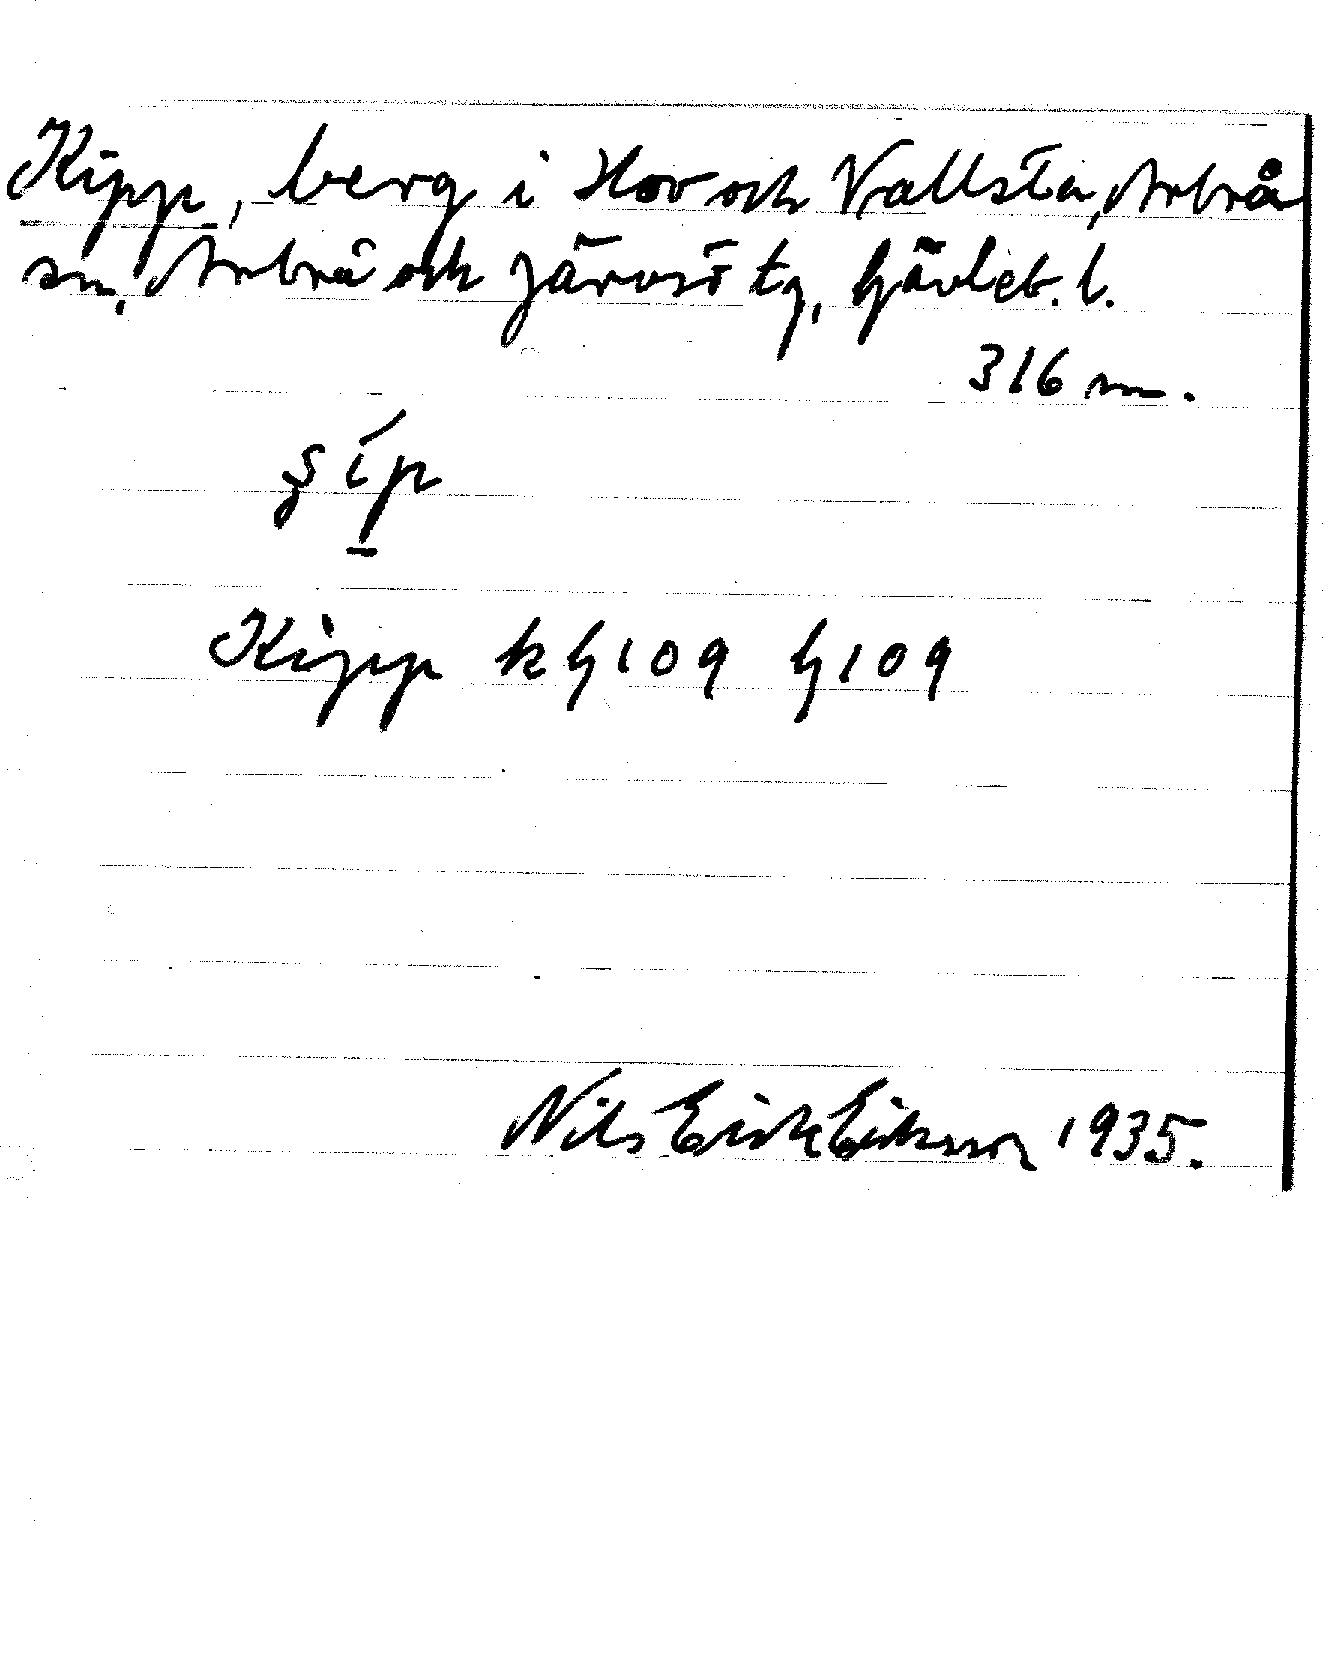 Kipp, berg i Hov och Vallsta, Arbrå
sn, Arbrå och Järvsö tg, Gävleb. l.
316 m.
Kipp k G 109 G 109
Nils Erik Eriksson 1935.